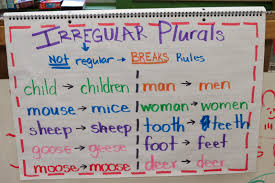 IRREGULAR Plurals
Not regular → BREAKS Rules
child → children
man → men
mouse → mice
woman → women
sheep → sheep
tooth → teeth
goose → geese
foot → feet
moose → moose
deer → deer